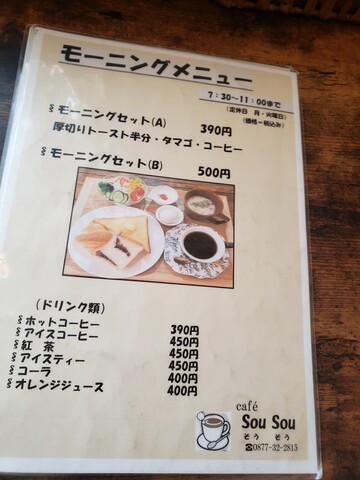 モーニングメニュー
7:30～11:00まで
(定休日 月・火曜日)
(価格～税込み)
モーニングセット(A) 390円
厚切りトースト半分・タマゴ・コーヒー
モーニングセット(B) 500円
(ドリンク類)
ホットコーヒー 390円
アイスコーヒー 450円
紅 茶 450円
アイスティー 450円
コーラ 400円
オレンジジュース 400円
café
Sou Sou
そう そう
☎0877-32-2815